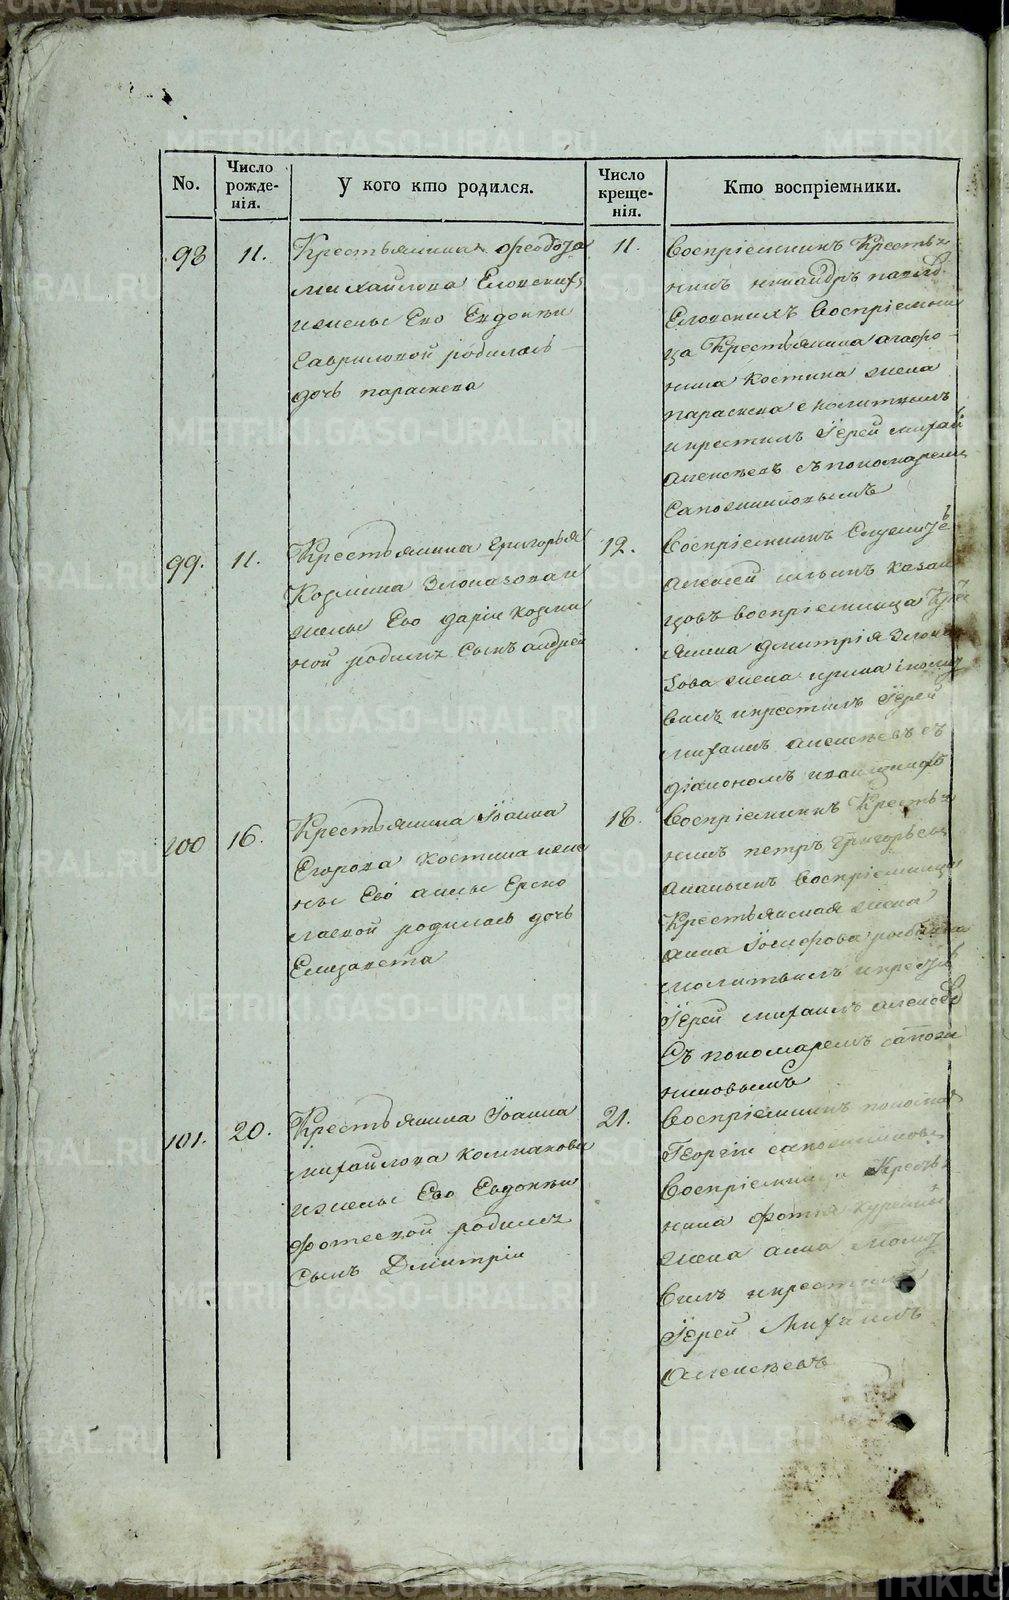 No.
Число рожде-нія.
У кого кто родился.
Число креще-нія.
Кто воспріемники.
98
11.
Крестьянина Феодота
михайлова Еловских
ижены Его Евдокеи
Гавриловой родилась
дочь параскева
11.
Воспріемникъ Кресть
нинъ никандръ павлов
Еловскихъ Воспріемни
ца Крестьянина агафо
ника Костина жена
параскева с молитвилъ
икрестилъ Іерей михаи
алексѣевъ съ пономаремъ
Сапожниковымъ
99.
11.
Крестьянина Григорья
Козмина Злоказова и
жены Его даріи козми
ной родился Сынъ андрей
12.
Воспріемникъ Служите
алексей ильинъ казан
цовъ воспріемница Крес
янина дмитрія Злока
зова жена ирина імолит
вилъ икрестилъ Іерей
михаилъ алексѣевъ съ
діакономъ
100
16.
Крестьянина Іоанна
Егорова костина иже
ны Его анны Ермо
лаевой родилась дочь
Елизавета
18.
Воспріемникъ Кресть
нинъ петръ григорьевъ
ананьинъ Воспріемница
Крестьянская жена
анна Іосифова
молитвилъ икрестил
Іерей михаилъ алексѣв
Съ пономаремъ сапож
никовымъ
101.
20.
Крестьянина Іоанна
михайлова колмакова
ижены Его Евдокеи
фотеевой родился
Сынъ Дмитріи
21.
Воспріемникъ понома
Георгіи сапожников
Воспріемница Кресть
нина фотія
жена анна молит
вилъ икрестилъ
Іерей Михаилъ
Алексѣевъ
METRIKI.GASO-URAL.RU